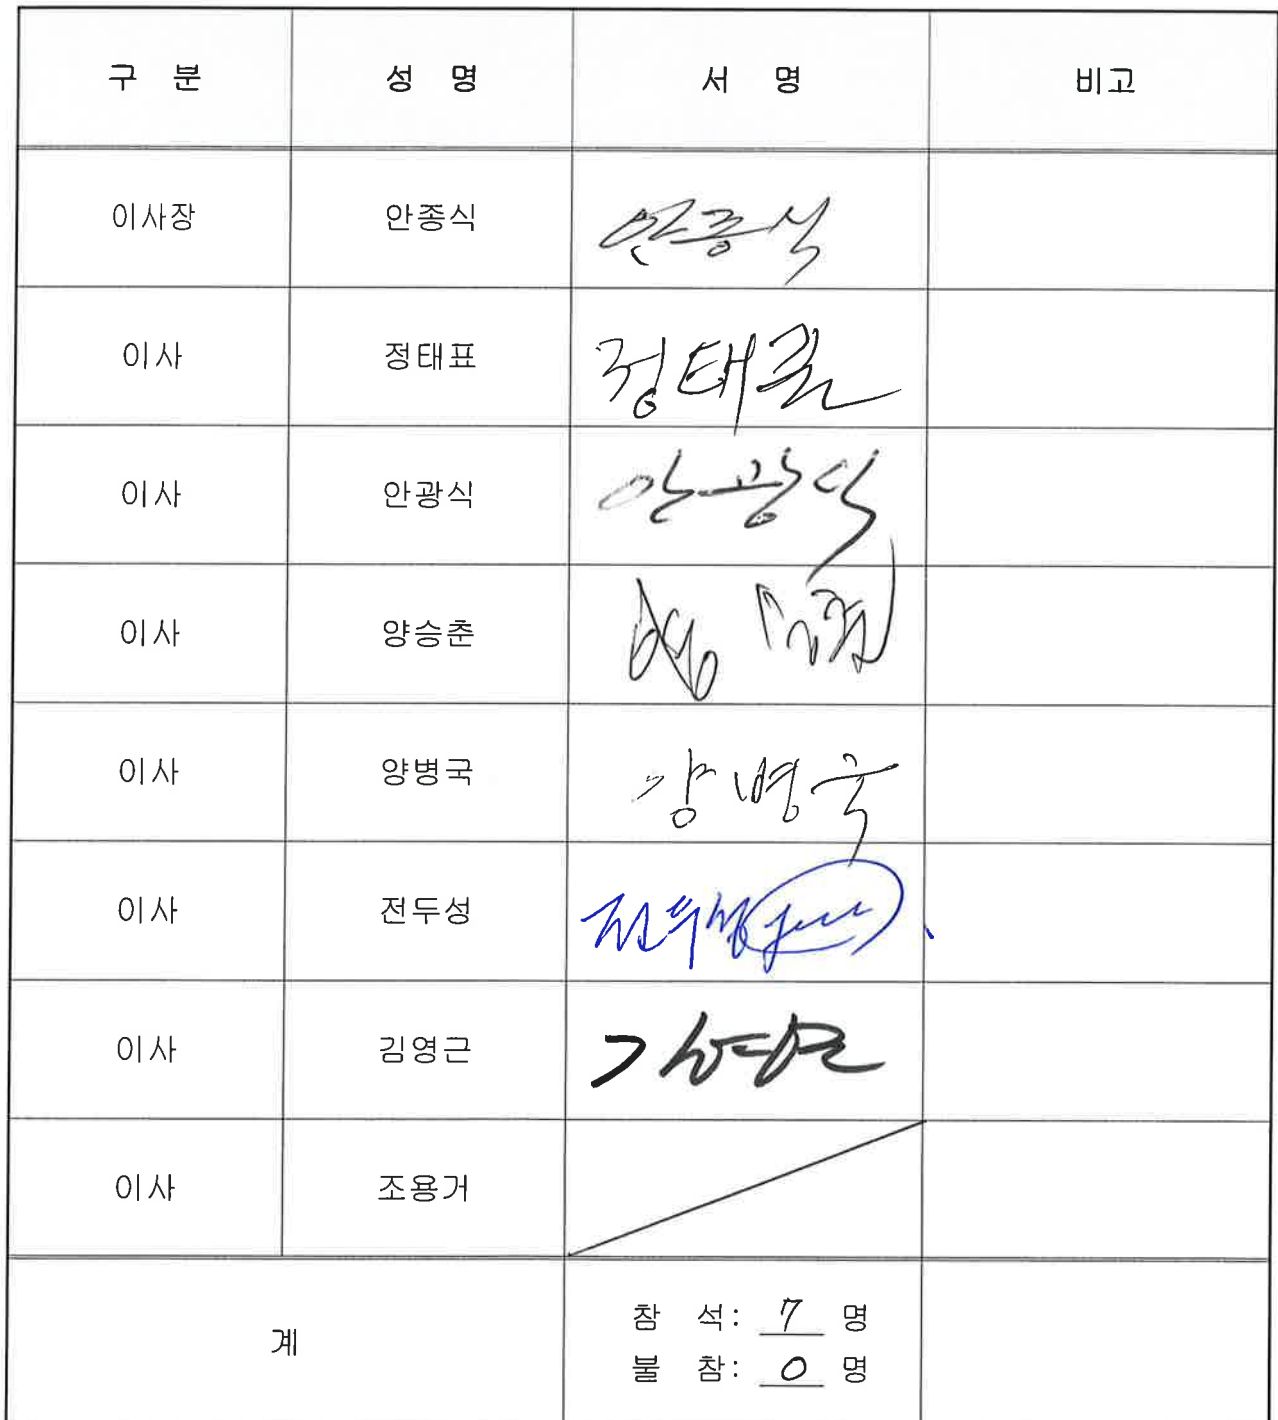 구 분 성 명 서 명 비고
이사장 안종식 안종식
이사 정태표 정태표
이사 안광식 안광식
이사 양승춘
이사 양병국 양병국
이사 전두성 전두성
이사 김영근
이사 조용거
계 참 석: 7 명
불 참: 0 명